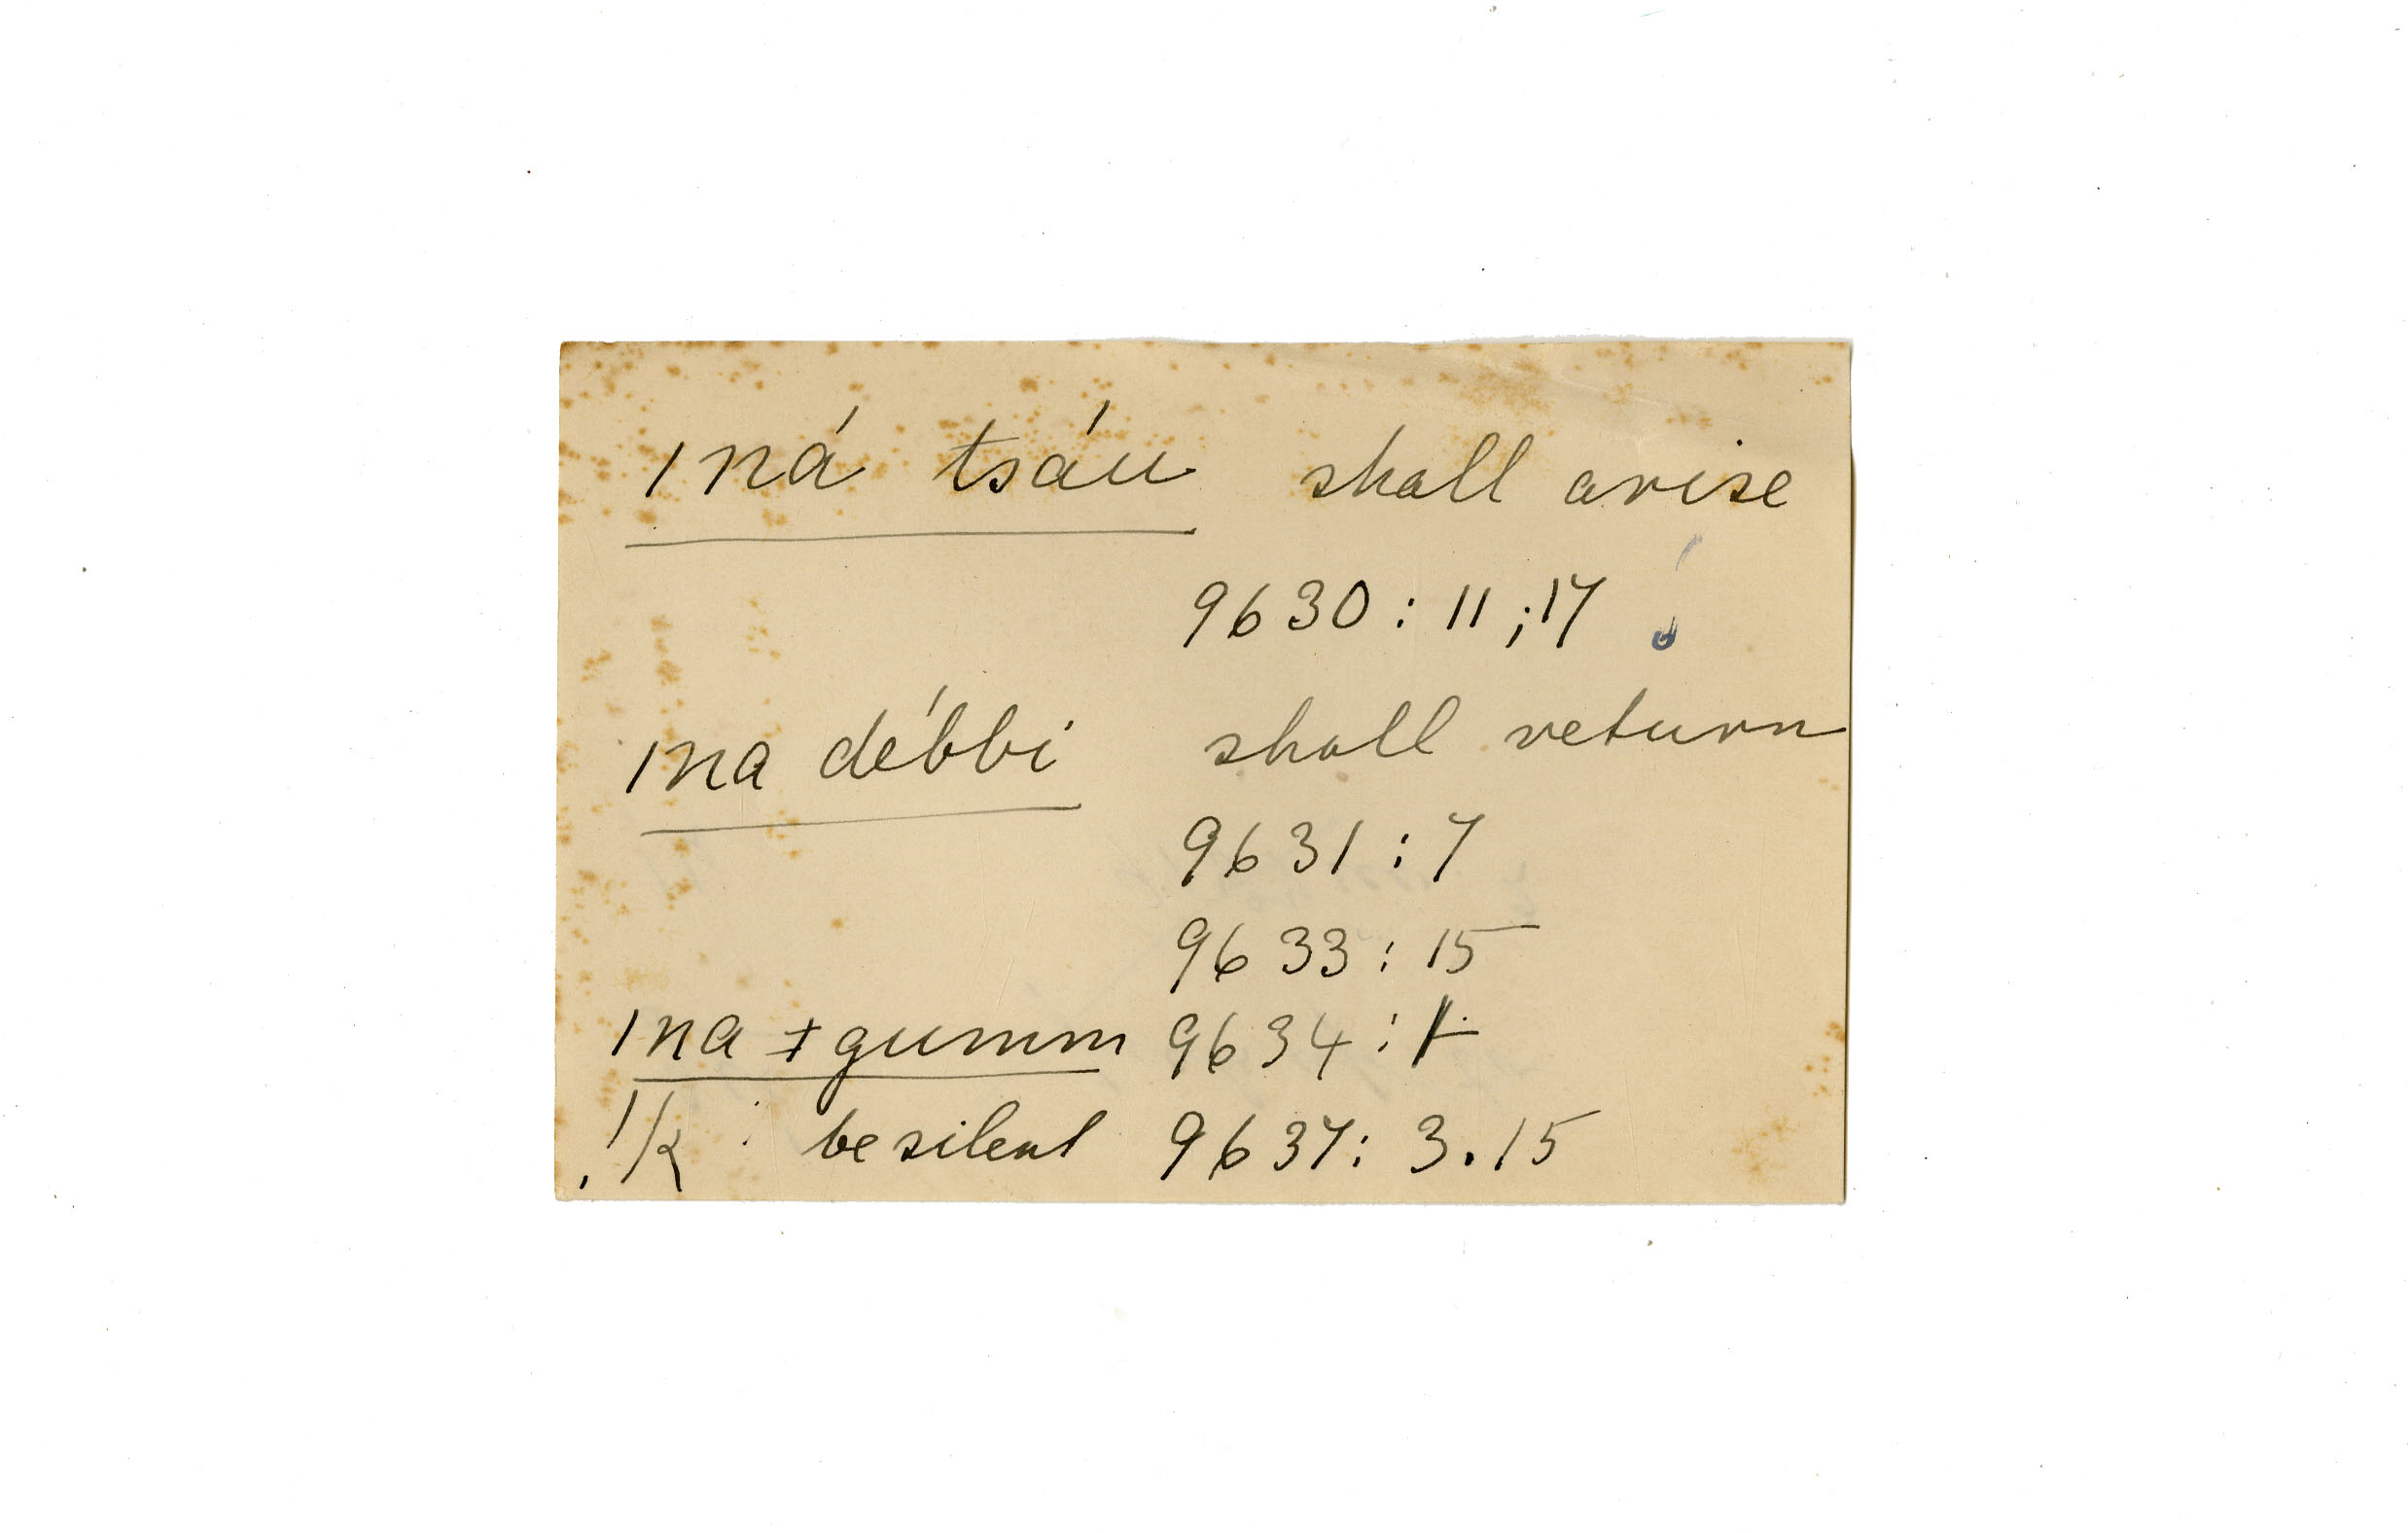 /ná tsáu shall arise
9630 : 11 ; 17
/na débbi shall return
9631 : 7
9633 : 15
/na ‡gumm 9634 : 1
!k : be silent 9637 : 3. 15